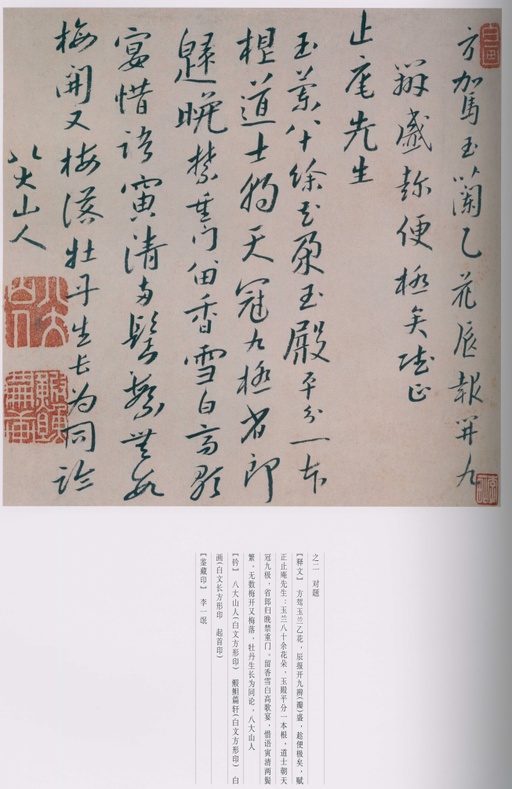 方駕玉蘭乙花辰報開九
辦盛趂便極矣賦正
止庵先生
玉蘭八十餘花朶玉殿平分一本
根道士朝天冠九極省郎
歸晚禁重門留香雪白高歌
宴惜語寅清两鬢繁無數
梅開又梅落牡丹生長为同論
八大山人
八大山人
之二 对题
【释文】 方驾玉兰乙花,辰报开九辨(瓣)盛,趁便极矣,赋
正止庵先生:玉兰八十余花朵,玉殿平分一本根,道士朝天
冠九极,省郎归晚禁重门,留香雪白高歌宴,惜语寅清两鬓
繁,无数梅开又梅落,牡丹生长为同论,八大山人
【钤】 八大山人(白文方形印) 篇轩(白文方形印) 白
画(白文长方形印 起首印)
【鉴藏印】 李一氓